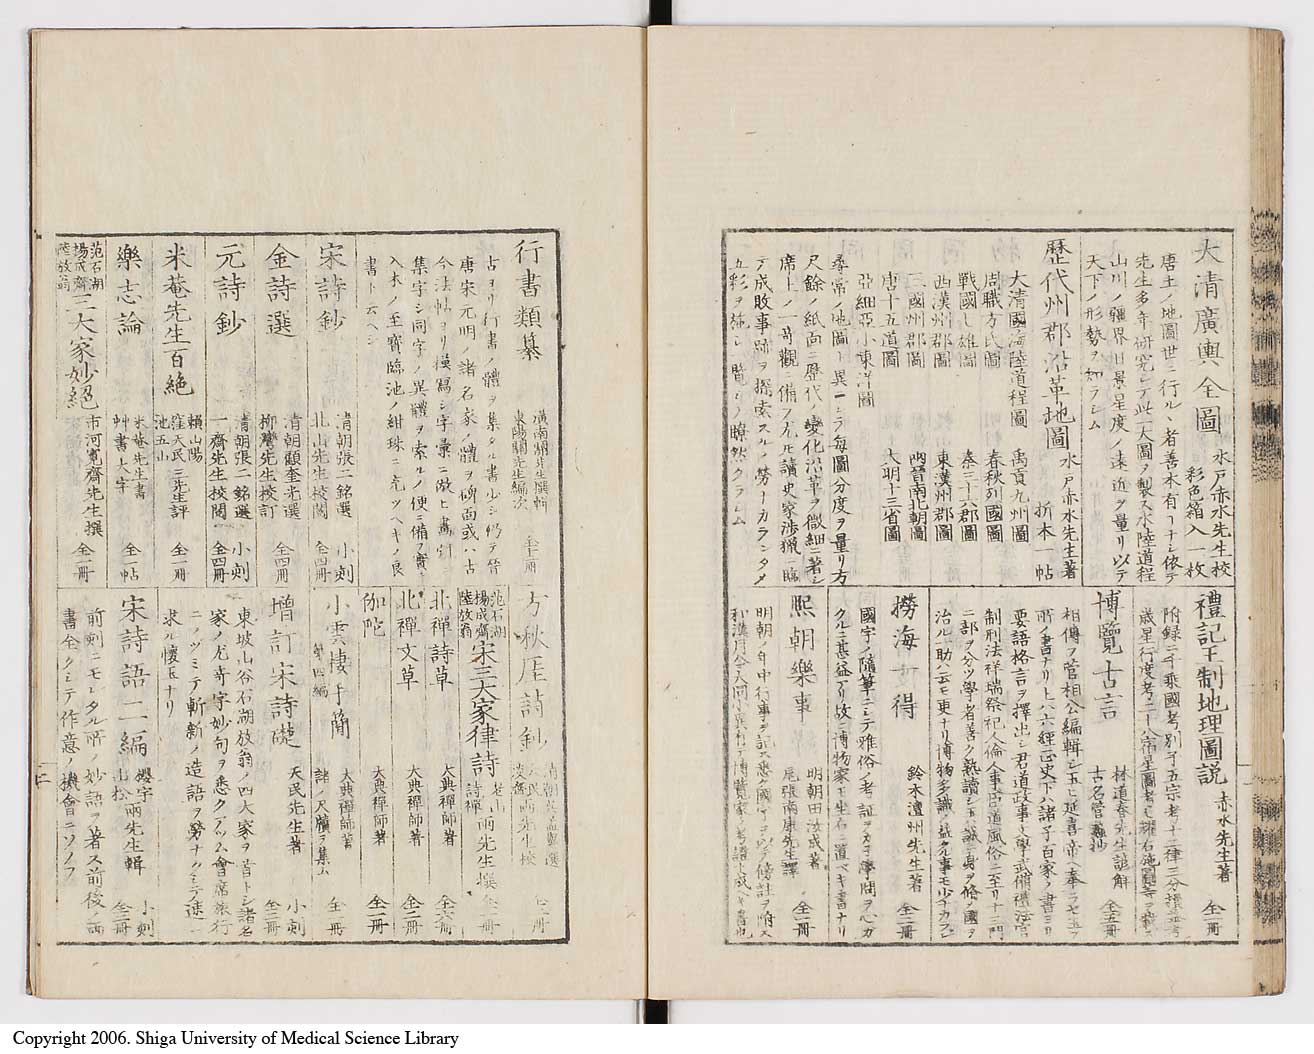 大清廣輿全圖
水戸赤水先生校
彩色箱入一枚
唐土ノ地圖世ニ行ルヽ者善本有ヿナシ依テ
先生多年研究シテ此一大圖ヲ製ス水陸道程
山川ノ疆界日景星度ノ遠近ヲ量リ以テ
天下ノ形勢ヲ知ラシム
歷代州郡沿革地圖
水戸赤水先生著
折本一帖
大清國海陸道程圖
禹貢九州圖
周職方氏圖
春秋列國圖
戰國七雄圖
秦三十六郡圖
西漢州郡圖
東漢州郡圖
三國州郡圖
兩晉南北朝圖
唐十五道圖
大明十三省圖
亞細亞小東洋圖
尋常ノ地圖ト異ニシテ每圖分度ヲ量リ方
尺餘ノ紙面ニ歷代ノ變化沿革ヲ微細ニ著シ
席上ノ一奇觀ニ備フ尤モ讀史家渉獵ニ臨
テ成敗事跡ヲ探索スルノ勞ーカランタメ
五彩ヲ施シ一覽シテ瞭然タラシム
禮記王制地理圖説
赤水先生著
全一冊
博覽古言
林道春先生諺解
古名管蠡抄
全五冊
相傳フ菅相公編輯シ玉ヒ延喜帝ヘ奉ラセ玉フ
所ノ書ナリ上ハ六經正史下ハ諸子百家ノ書ヨリ
要語格言ヲ擇出シ君道政事文學武備禮法官
制刑法祥瑞祭祀人倫人事臣道風俗ニ至リ十三門
二部ヲ分ツ學者善ク熟讀シ玉ハヾ誠ニ身ヲ脩メ國ヲ
治ルノ助ハ云モ更ナリ博物多識ノ益タル事モ少ナカラズ
撈海一得
鈴木澶州先生著
全二冊
國字ノ隨筆ニシテ雅俗ノ考証ヲカヨヒ學問ヲ心ガ
クルニ甚益アリ故ニ博物家モ坐右ニ置ベキ書ナリ
熙朝樂事
明朝田汝成著
尾張南康先生譯
全一冊
明朝ノ年中行事ヲ記ス悉ク國字ヲ以テ傍註ヲ附ス
行書類纂
濱南關先生撰輯
東陽關先生編次
全十二冊
古ヨリ行書ノ體ヲ集タル書少シ仍テ晉
唐宋元明ノ諸名家ノ體ヲ碑面或ハ古
今法帖ヨリ模寫シ字彙ニ倣ヒ畫引
集字シ同字ノ異體ヲ索ルノ便ニ備フ實ニ
入木ノ至寶臨池ノ紺珠ニ充ツヘキノ良
書ト云ヘシ
宋詩鈔
淸朝張二銘選
北山先生校閲
小刻
全四冊
金詩選
清朝顧奎光選
柳灣先生校訂
全四冊
元詩鈔
清朝張二銘選
一齋先生校閲
小刻
全四冊
米菴先生百絶
賴山陽
窪天民三先生評
池五山
全一冊
樂志論
米菴先生書
艸書大字
全一帖
范石湖
楊成齋三大家妙絕
陸放翁
市河寛齋先生撰
全一冊
方秋厓詩鈔
清朝吳孟舉選
天民
淡齋兩先生校
全一冊
范石湖
楊成齋宋三大家律詩
陸放翁
老山
詩禪兩先生撰
全二冊
北禪詩草
大典禪師著
全六冊
北禪文草
大典禪師著
全二冊
伽陀
大典禪師著
全一冊
小雲棲手簡
第四編
大典禪師著
諸ノ尺牘ヲ集ム
全一冊
增訂宋詩礎
天民先生著
小刻
全三冊
東坡山谷石湖放翁ノ四大家ヲ首トシ諸名
家ノ尤奇字妙句ヲ悉クアツム會席旅行
ニノゾミテ斬新ノ造語ヲ勞ナクシテ速ニ
求ル懷玉ナリ
宋詩語二編
櫻宇
山松兩先生輯
小刻
全二冊
前刻ニモレタル所ノ妙語ヲ著ス前後ノ兩
書全クシテ作意ノ機會ニソノフ
二
Copyright 2006. Shiga University of Medical Science Library